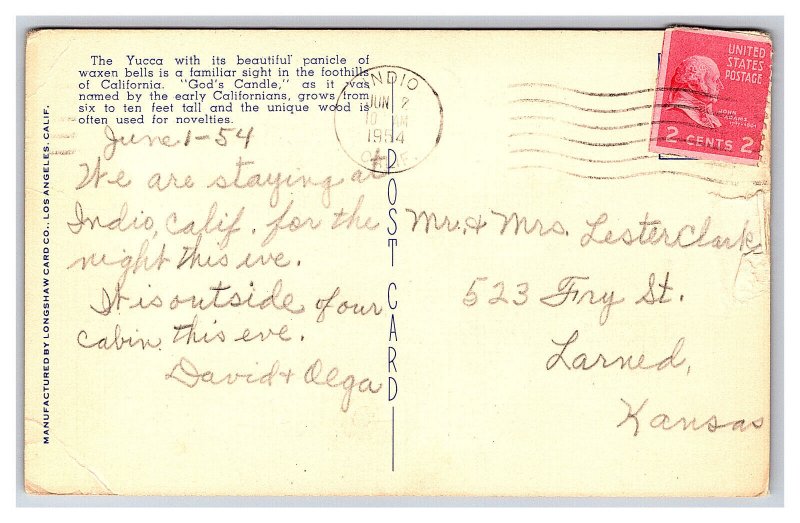 The Yucca with its beautiful panicle of
waxen bells is a familiar sight in the foothills
of California. "God's Candle," as it was
named by the early Californians, grows from
six to ten feet tall and the unique wood is
often used for novelties.
INDIO
JUN 2
10 AM
1954
CALIF.
UNITED
STATES
POSTAGE
JOHN
ADAMS
1797-1801
2 CENTS 2
June 1-54
We are staying at
Indio, Calif. for the
night this eve.
It is outside of our
cabin this eve.
David & Olga
POST CARD
Mr. & Mrs. Lester Clark
523 Fry St.
Larned,
Kansas
MANUFACTURED BY LONGSHAW CARD CO., LOS ANGELES, CALIF.